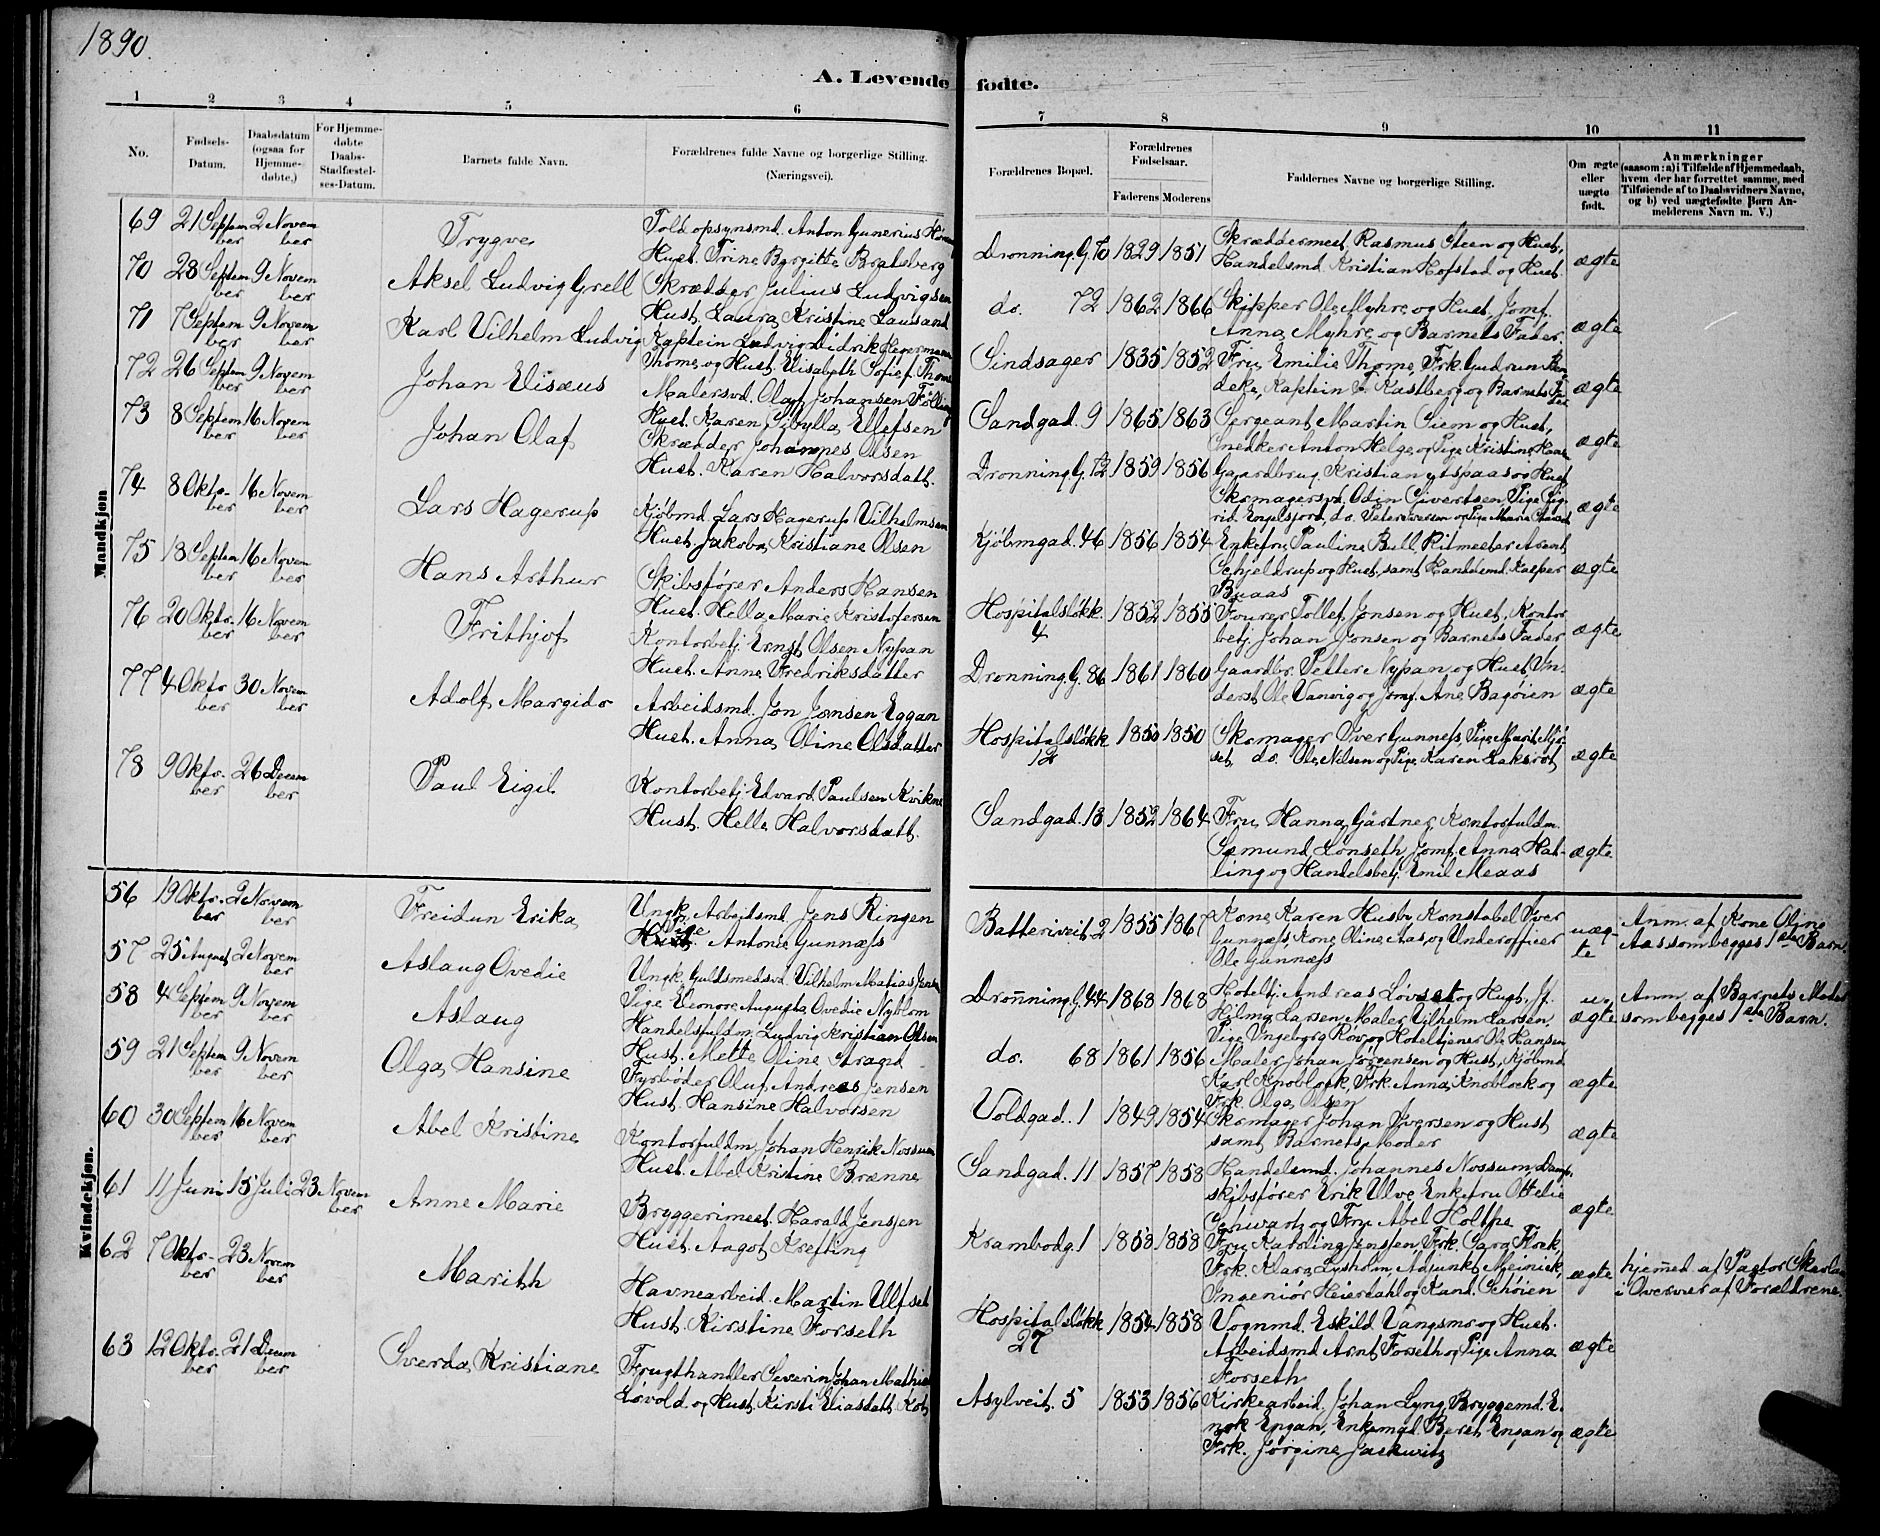 1890.
A. Levende fødte.
1 2 3 4 5 6 7 8 9 10 11
No.
Fødsels-Datum.
Daabsdatum (ogsaa for Hjemme-døbte.)
For Hjemme-døbte Daabs-Stadfæstel-ses-Datum.
Barnets fulde Navn.
Forældrenes fulde Navne og borgerlige Stilling.
(Næringsvei).
Forældrenes Bopæl.
Forældrenes Fødselsaar.
Faderens Moderens
Faddernes Navne og borgerlige Stilling.
Om ægte eller uægte født.
Anmærkninger
(saasom: a) i Tilfælde af Hjemmedaab, hvem der har forrettet samme, med Tilføiende af to Daabsvidners Navne, og b) ved uægtefødte Børn Anmelderens Navn m. V.)
Mandkjøn
69 21 September 2 November Trygve
Told opsynsmd. Anton Gunerius
Hust. Trine Bergitte Bratsberg
Dronning.G. 70 1829 1851
Skræddermest. Rasmus Steen og Hust,
Handelsmd. Kristian Hofstad og Hust
ægte
70 28 September 9 November Aksel Ludvig Grell
Skrædder Julius Ludvigsen
Hust. Laura Kristine Lausand
do. 72 1862 1866
Skipper Ole Myhre og Hust, Jomf.
Anna Myhre og Barnets Fader
ægte
71 7 September 9 November Karl Vilhelm Ludvig
Kaptein Ludvig Didrik Hegermann
Thome og Hust. Elisabeth Sofie f. Thome
Sindsager 1835 1852
Fru Emilie Thome, Frk. Gudrun
Kaptein F. Kastberg og Barnets Fader
ægte
72 26 September 9 November Johan Elisæus
Malersvd. Olaf Johansen
Hust. Karen Sibylla Ellefsen
Sandgad. 9 1865 1863
Sergeant Martin Siem og Hust,
Snedker Anton Helge, og Pige Kristine
ægte
73 8 September 16 November Johan Olaf
Skrædder Johannes Olsen
Hust. Karen Halvorsdatt.
Dronning.G. 12 1859 1856
Gaardbrug. Kristian og Hust
Skomagersvd. Odin Sivertsen Pige
ægte
74 8 Oktober 16 November Lars Hagerup
Kjøbmd. Lars Hagerup Vilhelmsen
Hust. Jakoba Kristiane Olsen
Kjøbmgad. 46 1856 1854
Enkefru Pauline Bull, Ritmester Arent
Schjeldrup og Hust, samt Handelsmd. Kasper
Buaas
ægte
75 18 September 16 November Hans Arthur
Skibsfører Anders Hansen
Hust. Hella Marie Kristofersen
Hospitalsløkk. 4 1852 1855
Fourer Tollef Jonsen og Hust, Kontor
betj. Johan Jonsen og Barnets Fader
ægte
76 20 Oktober 16 November Frithjof
Kontorbetj. Ernst Olsen Nypan
Hust. Anne Fredriksdatter
Dronning.G. 86 1861 1860
Gaardbr. Petter Nypan og Hust. Un-
derof. Ole Vanvig og Jomf. Ane Bagøien
ægte
77 4 Oktober 30 November Adolf Margido
Arbeidsmd. Jon Jonsen Eggan
Hust. Anna Oline Olsdatter
Hospitalsløkk 12 1850 1850
Skomager Iver Gunnefs, Pige Marit
do. Ole Nilsen og Pige Karen Laksrot
ægte
78 9 Oktober 26 December Paul Eigil
Kontorbetj. Edvard Paulsen Kvikne
Hust. Helle Halvorsdatt.
Sandgad. 13 1852 1864
Fru Hanna Gärtner, Kontorfuldm.
Sæmund Lønseth, Jomf. Anna Hat-
ling og Handelsbetj. Emil Meaas
ægte
Kvindekjøn.
56 19 Oktober 2 November Freidun Erika
Ungk. Arbeidsmd. Jens Ringen
Pige Antonie Gunnæfs
Batteriveit 2 1855 1867
Kone Karen Husby Konstabel Iver
Gunnæfs, Kone Oline Aas, og Underofficer
Ole Gunnæfs
uæg-
te
Anm. af Kone Oline
Aas som begges 1ste Barn.
57 25 August 2 November Aslaug Ovedie
Ungk. Guldsmedsvd. Vilhelm Matias Jensen
Pige Eleonore Augusta Ovedie Nyblom
Dronning.G. 44 1868 1868
Hotelej. Andreas Løvset og Hust, Jf.
Hilma Larsen Maler Vilhelm Larsen,
Pige Ingeborg Røv og Hoteltjener Ole Hansen
uægte
Anm. af Barnets Moder
som begges 1ste Barn.
58 4 September 9 November Aslaug
Handelsfuldm. Ludvig Kristian Olsen
Hust. Mette Oline Strand
do. 68 1861 1856
Maler Johan Jørgensen og Hust, Kjøbmd.
Karl Knoblock, Frk. Anna Knoblock og
Frk. Olga Olsen
ægte
59 21 September 9 November Olga Hansine
Fyrbøder Oluf Andreas Jensen
Hust. Hansine Halvorsen
Voldgad. 1 1849 1854
Skomager Johan Iversen og Hust
samt Barnets Moder
ægte
60 30 September 16 November Abel Kristine
Kontorfuldm. Johan Henrik Nossum
Hust. Abel Kristine Brænne
Sandgad. 11 1857 1858
Handelsmd. Johannes Nossum, Damp-
skibsfører Erik Ulve Enkefru Ottelie
Schwartz og Fru Abel Holthe
ægte
61 11 Juni 15 Juli 23 November Anne Marie
Bryggerimest. Harald Jenssen
Hust. Aagot Krefting
Krambodg. 1 1853 1858
Fru Karoline Jenssen Frk. Sara
Frk. Klara Lysholm, Adjunkt Meinick,
Ingeniør Heierdahl og Kand. Schøien
ægte
hjemmed. af Pastor
i Overvær af Forældrene.
62 7 Oktober 23 November Marith
Havnearbeid. Martin Ulfset
Hust. Kirstine Forseth
Hospitalsløkk 27 1854 1858
Vognmd. Eskild Vangsmo og Hust.
Arbeidsmd. Arnt Forseth og Pige Anna
Forseth
ægte
63 12 Oktober 21 December Sverda Kristiane
Frugthandler Severin Johan Mathias
Lovold og Hust. Kirsti Eliasdatt.
Asylveit. 5 1853 1856
Kirkearbeid. Johan Lyng, Bryggemd. E-
nok Engan, Enkemad. Beret Engan og
Frk. Jørgine
ægte